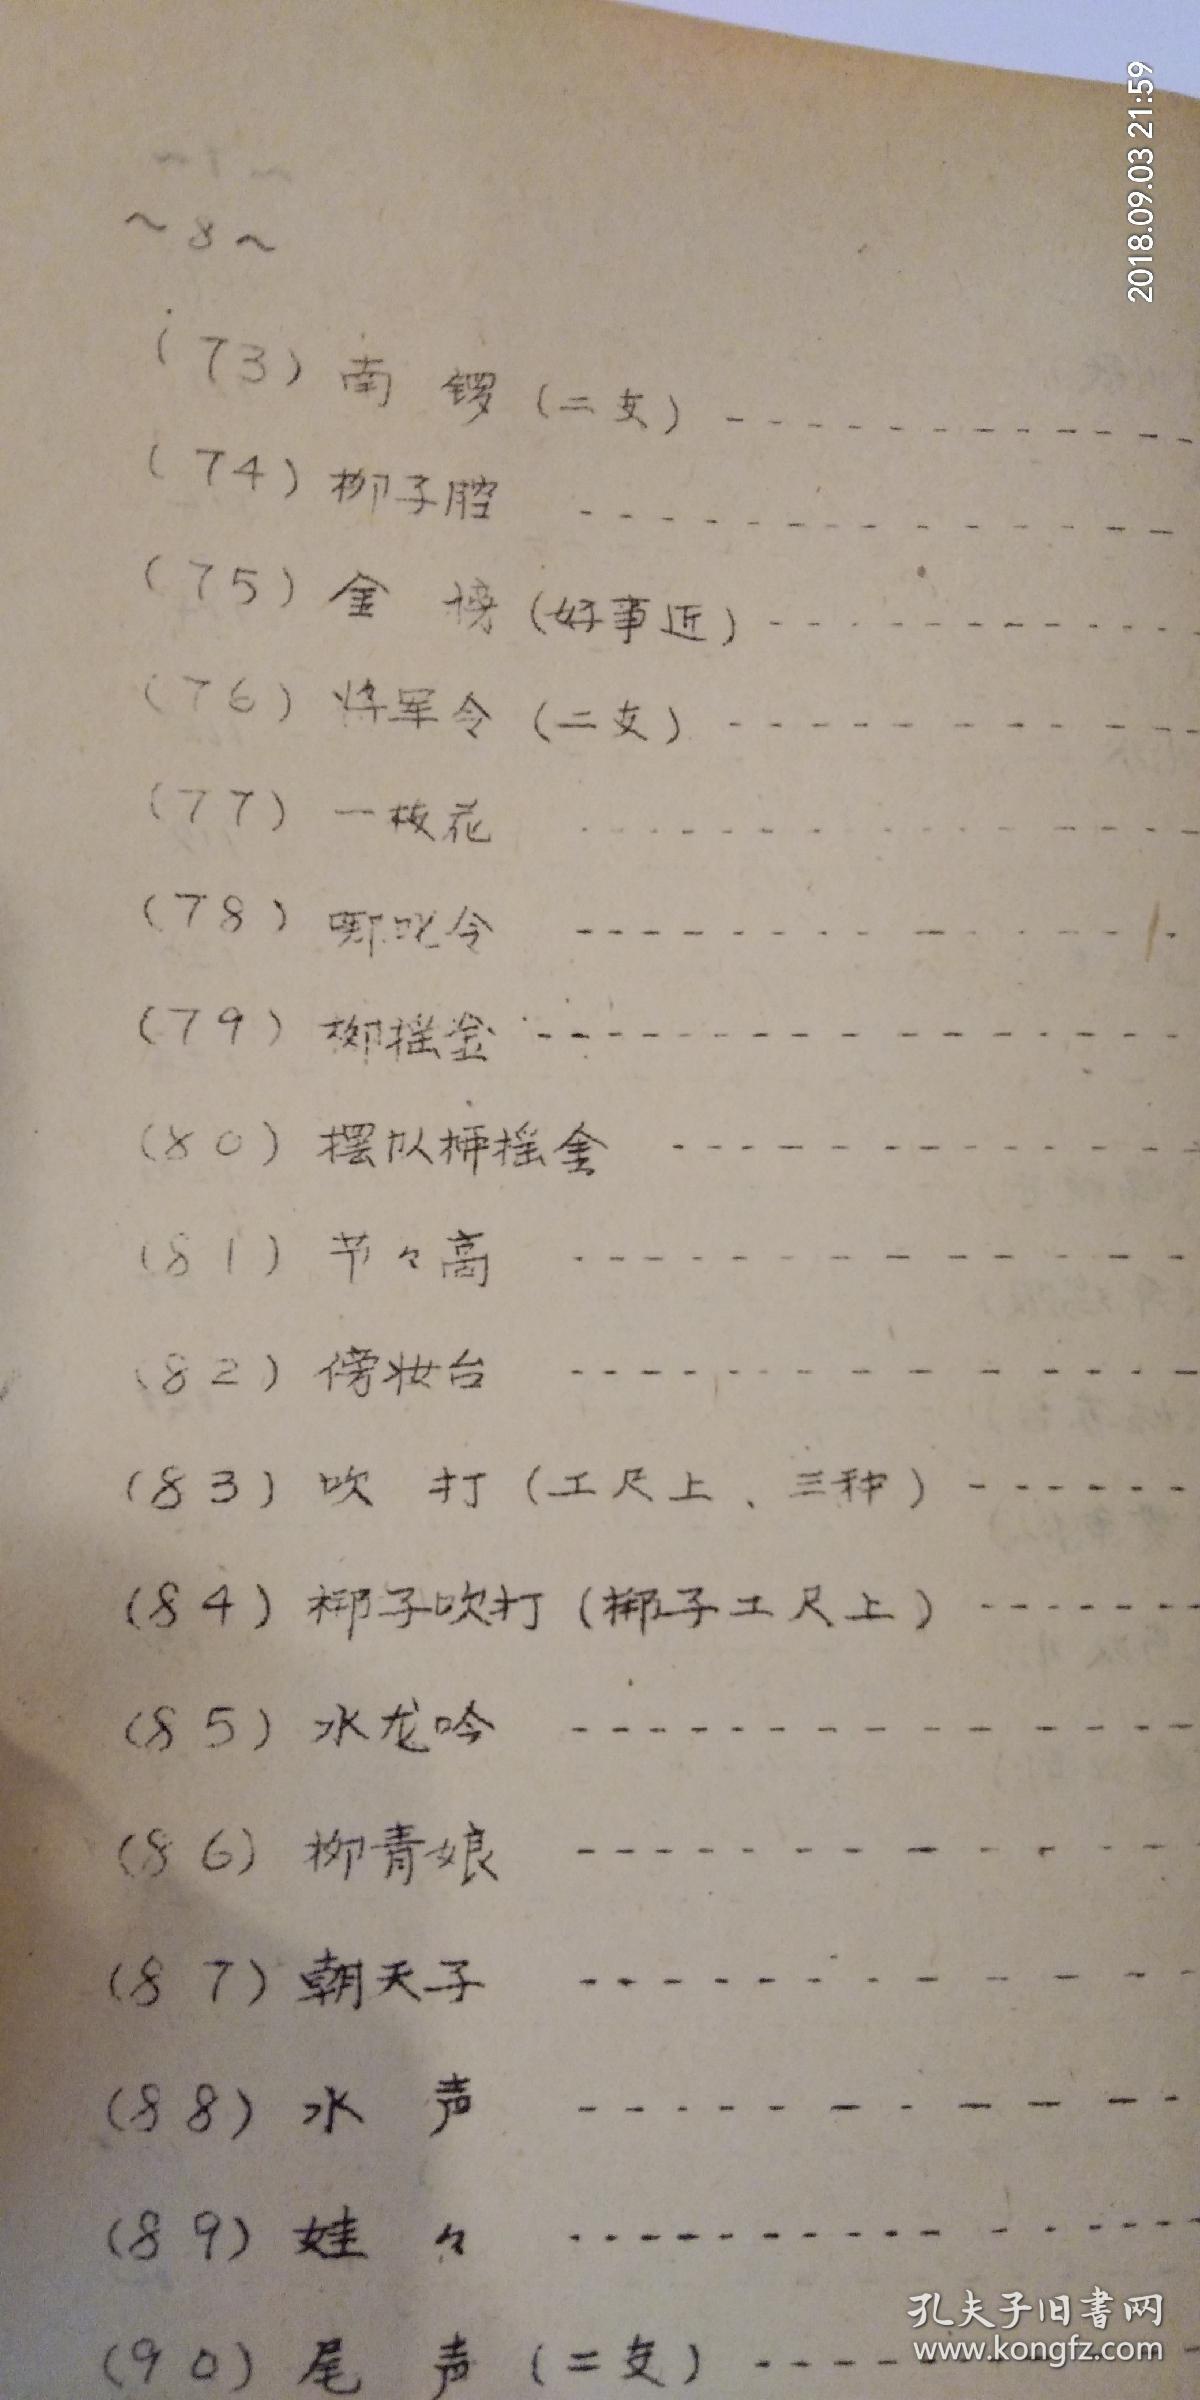 ~8~
(73) 南 锣 (二支)
(74) 柳子腔
(75) 金 榜 (好事近)
(76) 将军令 (二支)
(77) 一枝花
(78) 哪吒令
(79) 柳摇金
(80) 摆队柳摇金
(81) 节々高
(82) 傍妆台
(83) 吹 打 (工尺上、三种)
(84) 梆子吹打 (梆子工尺上)
(85) 水龙吟
(86) 柳青娘
(87) 朝天子
(88) 水 声
(89) 娃 々
(90) 尾 声 (二支)
2018.09.03 21:59
孔夫子旧书网
www.kongfz.com